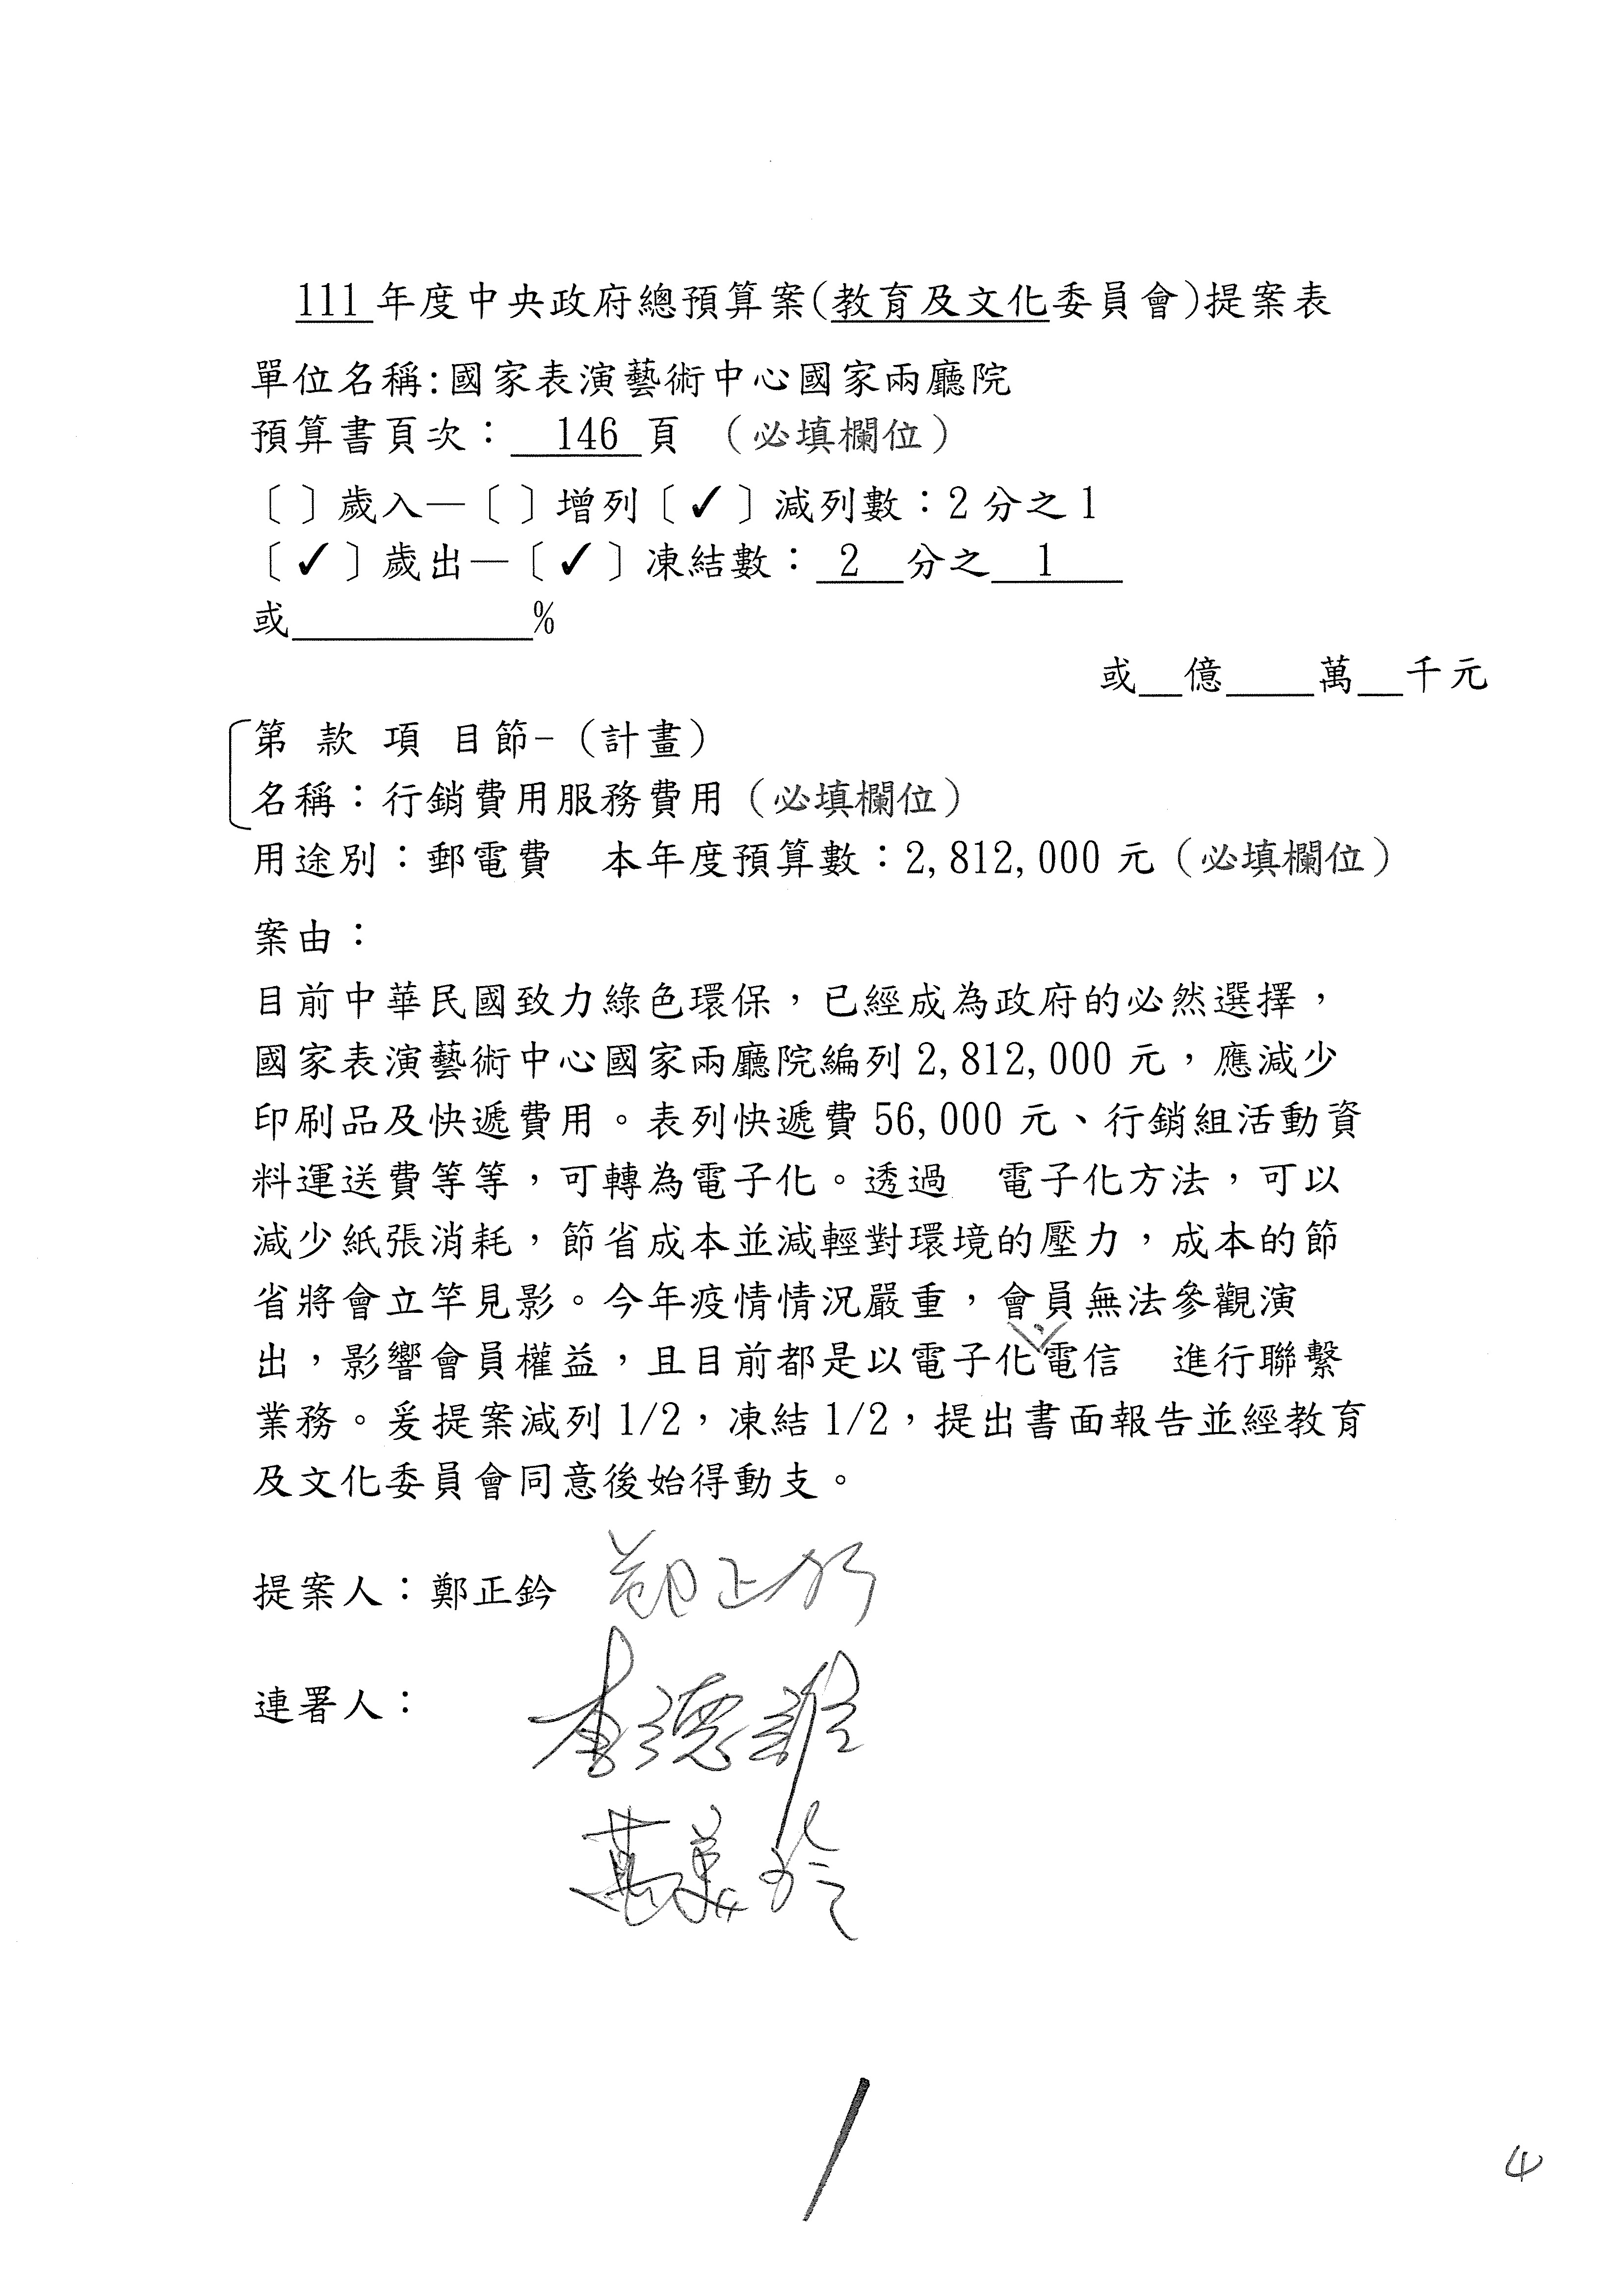 111年度中央政府總預算案(教育及文化委員會)提案表
單位名稱:國家表演藝術中心國家兩廳院
預算書頁次： 146 頁 （必填欄位）
〔 〕歲入—〔 〕增列〔 ✓ 〕減列數：2 分之 1
〔 ✓ 〕歲出—〔 ✓ 〕凍結數： 2 分之 1
或___________%
或__億____萬__千元
第 款 項 目節-（計畫）
名稱：行銷費用服務費用（必填欄位）
用途別：郵電費 本年度預算數：2,812,000 元（必填欄位）
案由：
目前中華民國致力綠色環保，已經成為政府的必然選擇，
國家表演藝術中心國家兩廳院編列 2,812,000 元，應減少
印刷品及快遞費用。表列快遞費 56,000 元、行銷組活動資
料運送費等等，可轉為電子化。透過 電子化方法，可以
減少紙張消耗，節省成本並減輕對環境的壓力，成本的節
省將會立竿見影。今年疫情情況嚴重，會員無法參觀演
出，影響會員權益，且目前都是以電子化電信 進行聯繫
業務。爰提案減列 1/2，凍結 1/2，提出書面報告並經教育
及文化委員會同意後始得動支。
提案人：鄭正鈐 鄭正鈐
連署人：
李德維
萬美玲
4